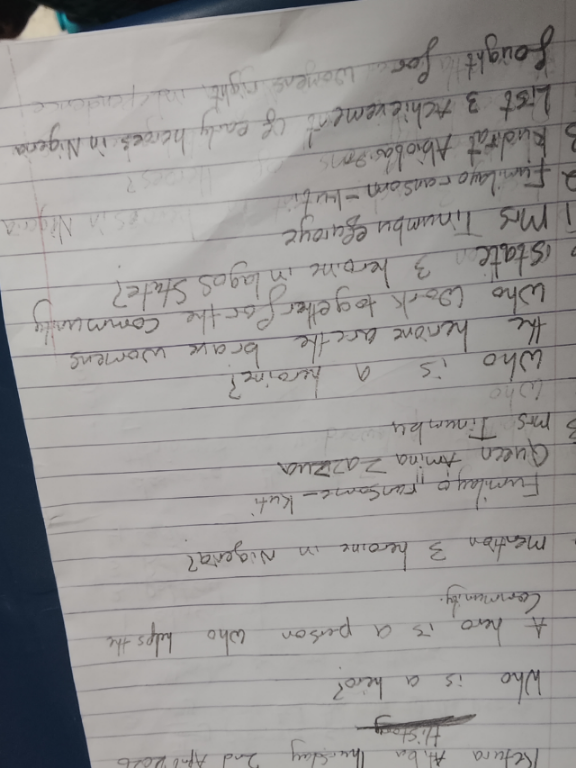 Ketura Thursday 2nd April 2026
History
Who is a hero?
A hero is a person who helps the
Community.
mention 3 heroine in Nigeria?
Fumilayo ransome - Kuti
Queen Amina Zazzua
3 mrs Tinumbu
Who
Who is a heroine?
the herione are the brave womens
who work together for the community
State 3 heroine in lagos State?
1 Mrs Tinumbu efuroye
2 Fumilayo ransom - kuti
3 Kudirat Abiola
List 3 Achievement of early heroes in Nigeria
fought for womens right, independence